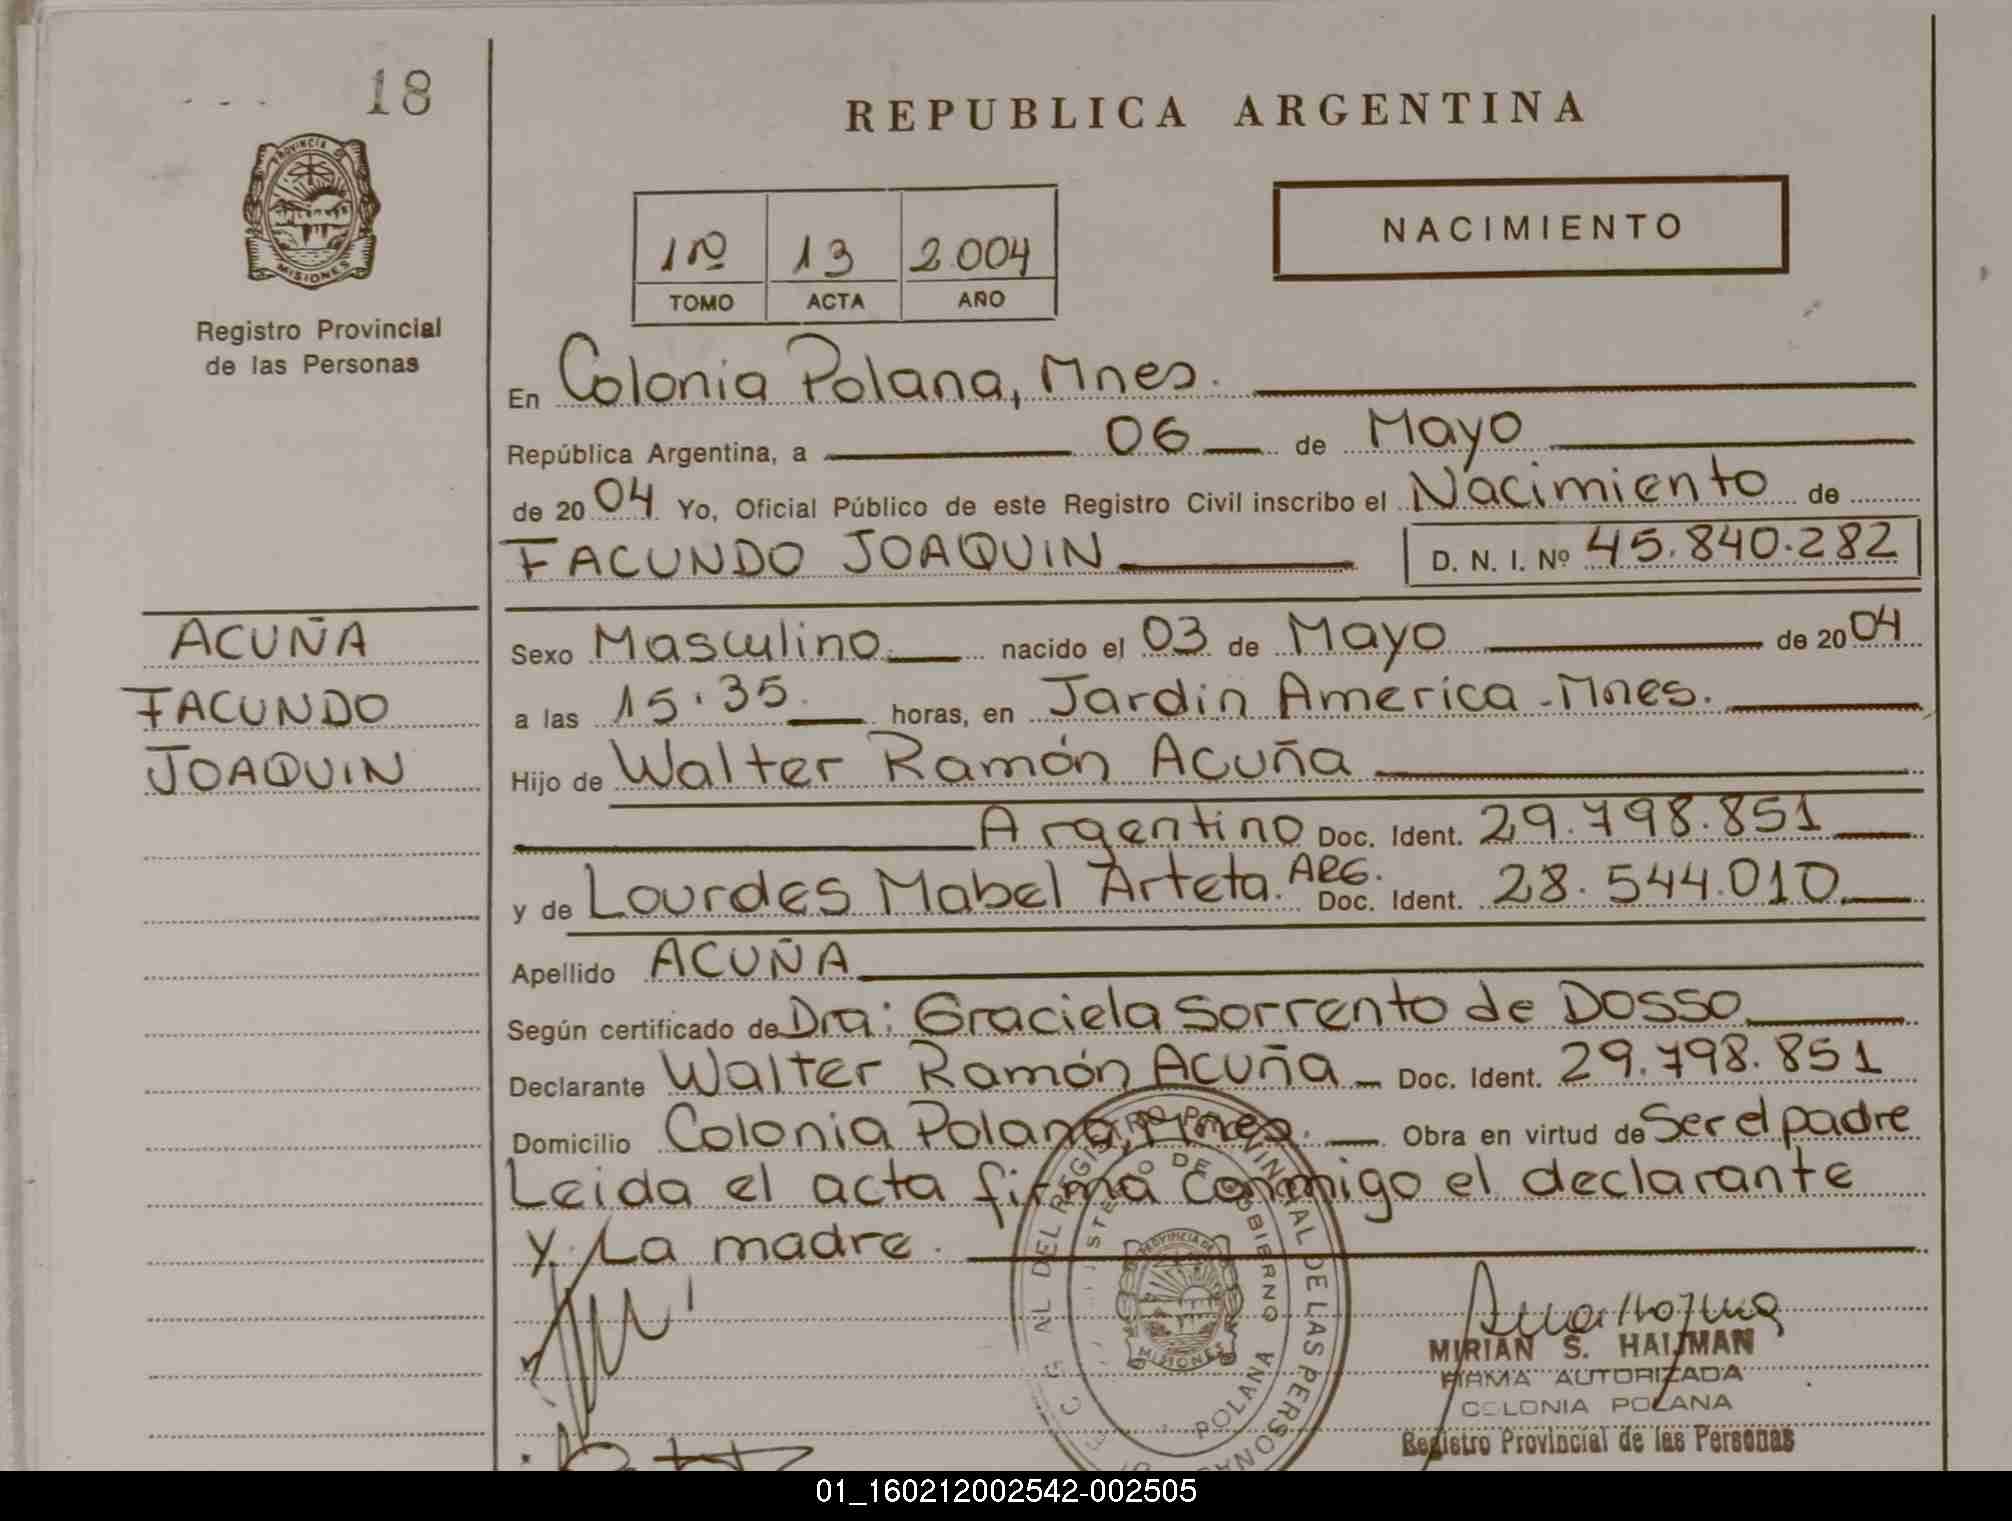 18
REPUBLICA ARGENTINA
PROVINCIA DE
MISIONES
Registro Provincial
de las Personas
1º 13 2.004
TOMO ACTA AÑO
NACIMIENTO
En Colonia Polana, Mnes.
República Argentina, a 06 de Mayo
de 2004 Yo, Oficial Público de este Registro Civil inscribo el Nacimiento de
FACUNDO JOAQUIN D. N. I. Nº 45.840.282
ACUÑA
FACUNDO
JOAQUIN
Sexo Masculino nacido el 03 de Mayo de 2004
a las 15.35 horas, en Jardin America - Mnes.
Hijo de Walter Ramón Acuña
Argentino Doc. Ident. 29.798.851
y de Lourdes Mabel Arteta. ARG. Doc. Ident. 28.544.010
Apellido ACUÑA
Según certificado de Dra: Graciela Sorrento de DOSSO
Declarante Walter Ramón Acuña Doc. Ident. 29.798.851
Domicilio Colonia Polana, Mnes. Obra en virtud de Ser el padre
Leida el acta firma conmigo el declarante
y La madre.
AL DEL REGISTRO PROVINCIAL DE LAS PERSONAS
DE GOBIERNO
PROVINCIA DE
MISIONES
POLANA
MIRIAN S. HAUMAN
FIRMA AUTORIZADA
COLONIA POLANA
Registro Provincial de las Personas
01_160212002542-002505